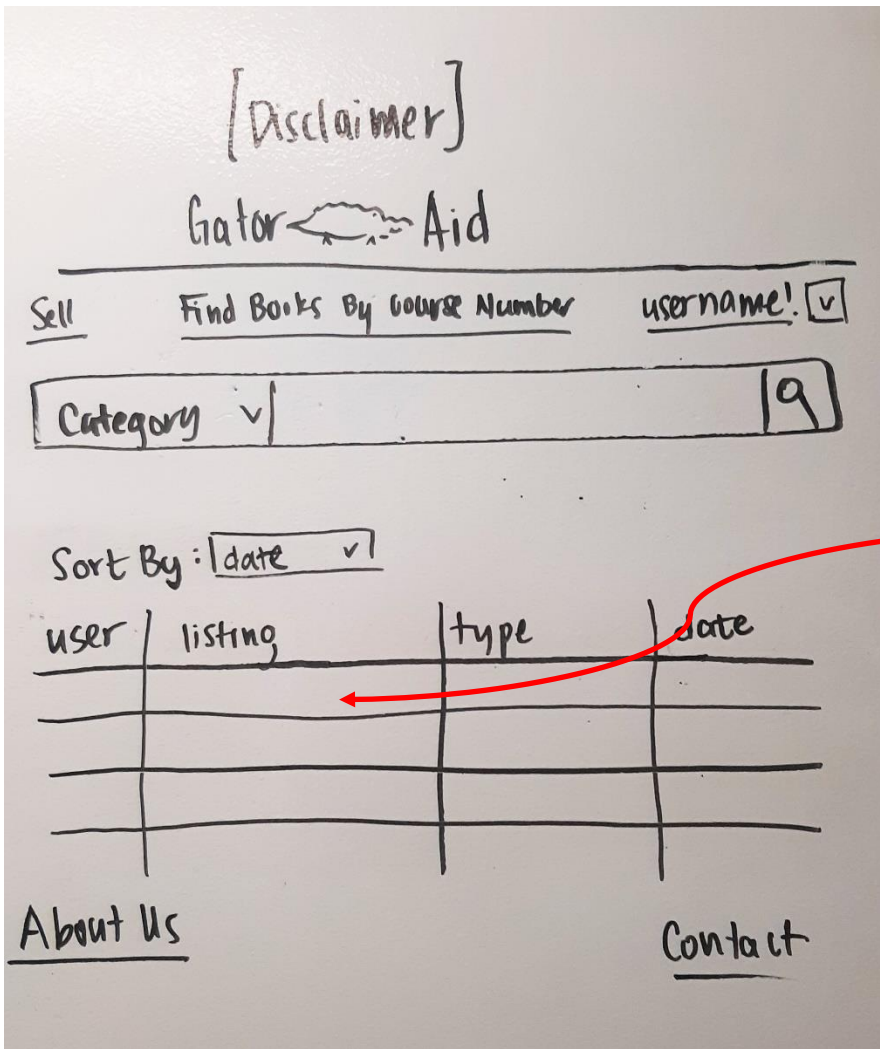 [Disclaimer]
Gator Aid
Sell Find Books By Course Number username!
Category
Sort By: date
user listing type date
About Us Contact